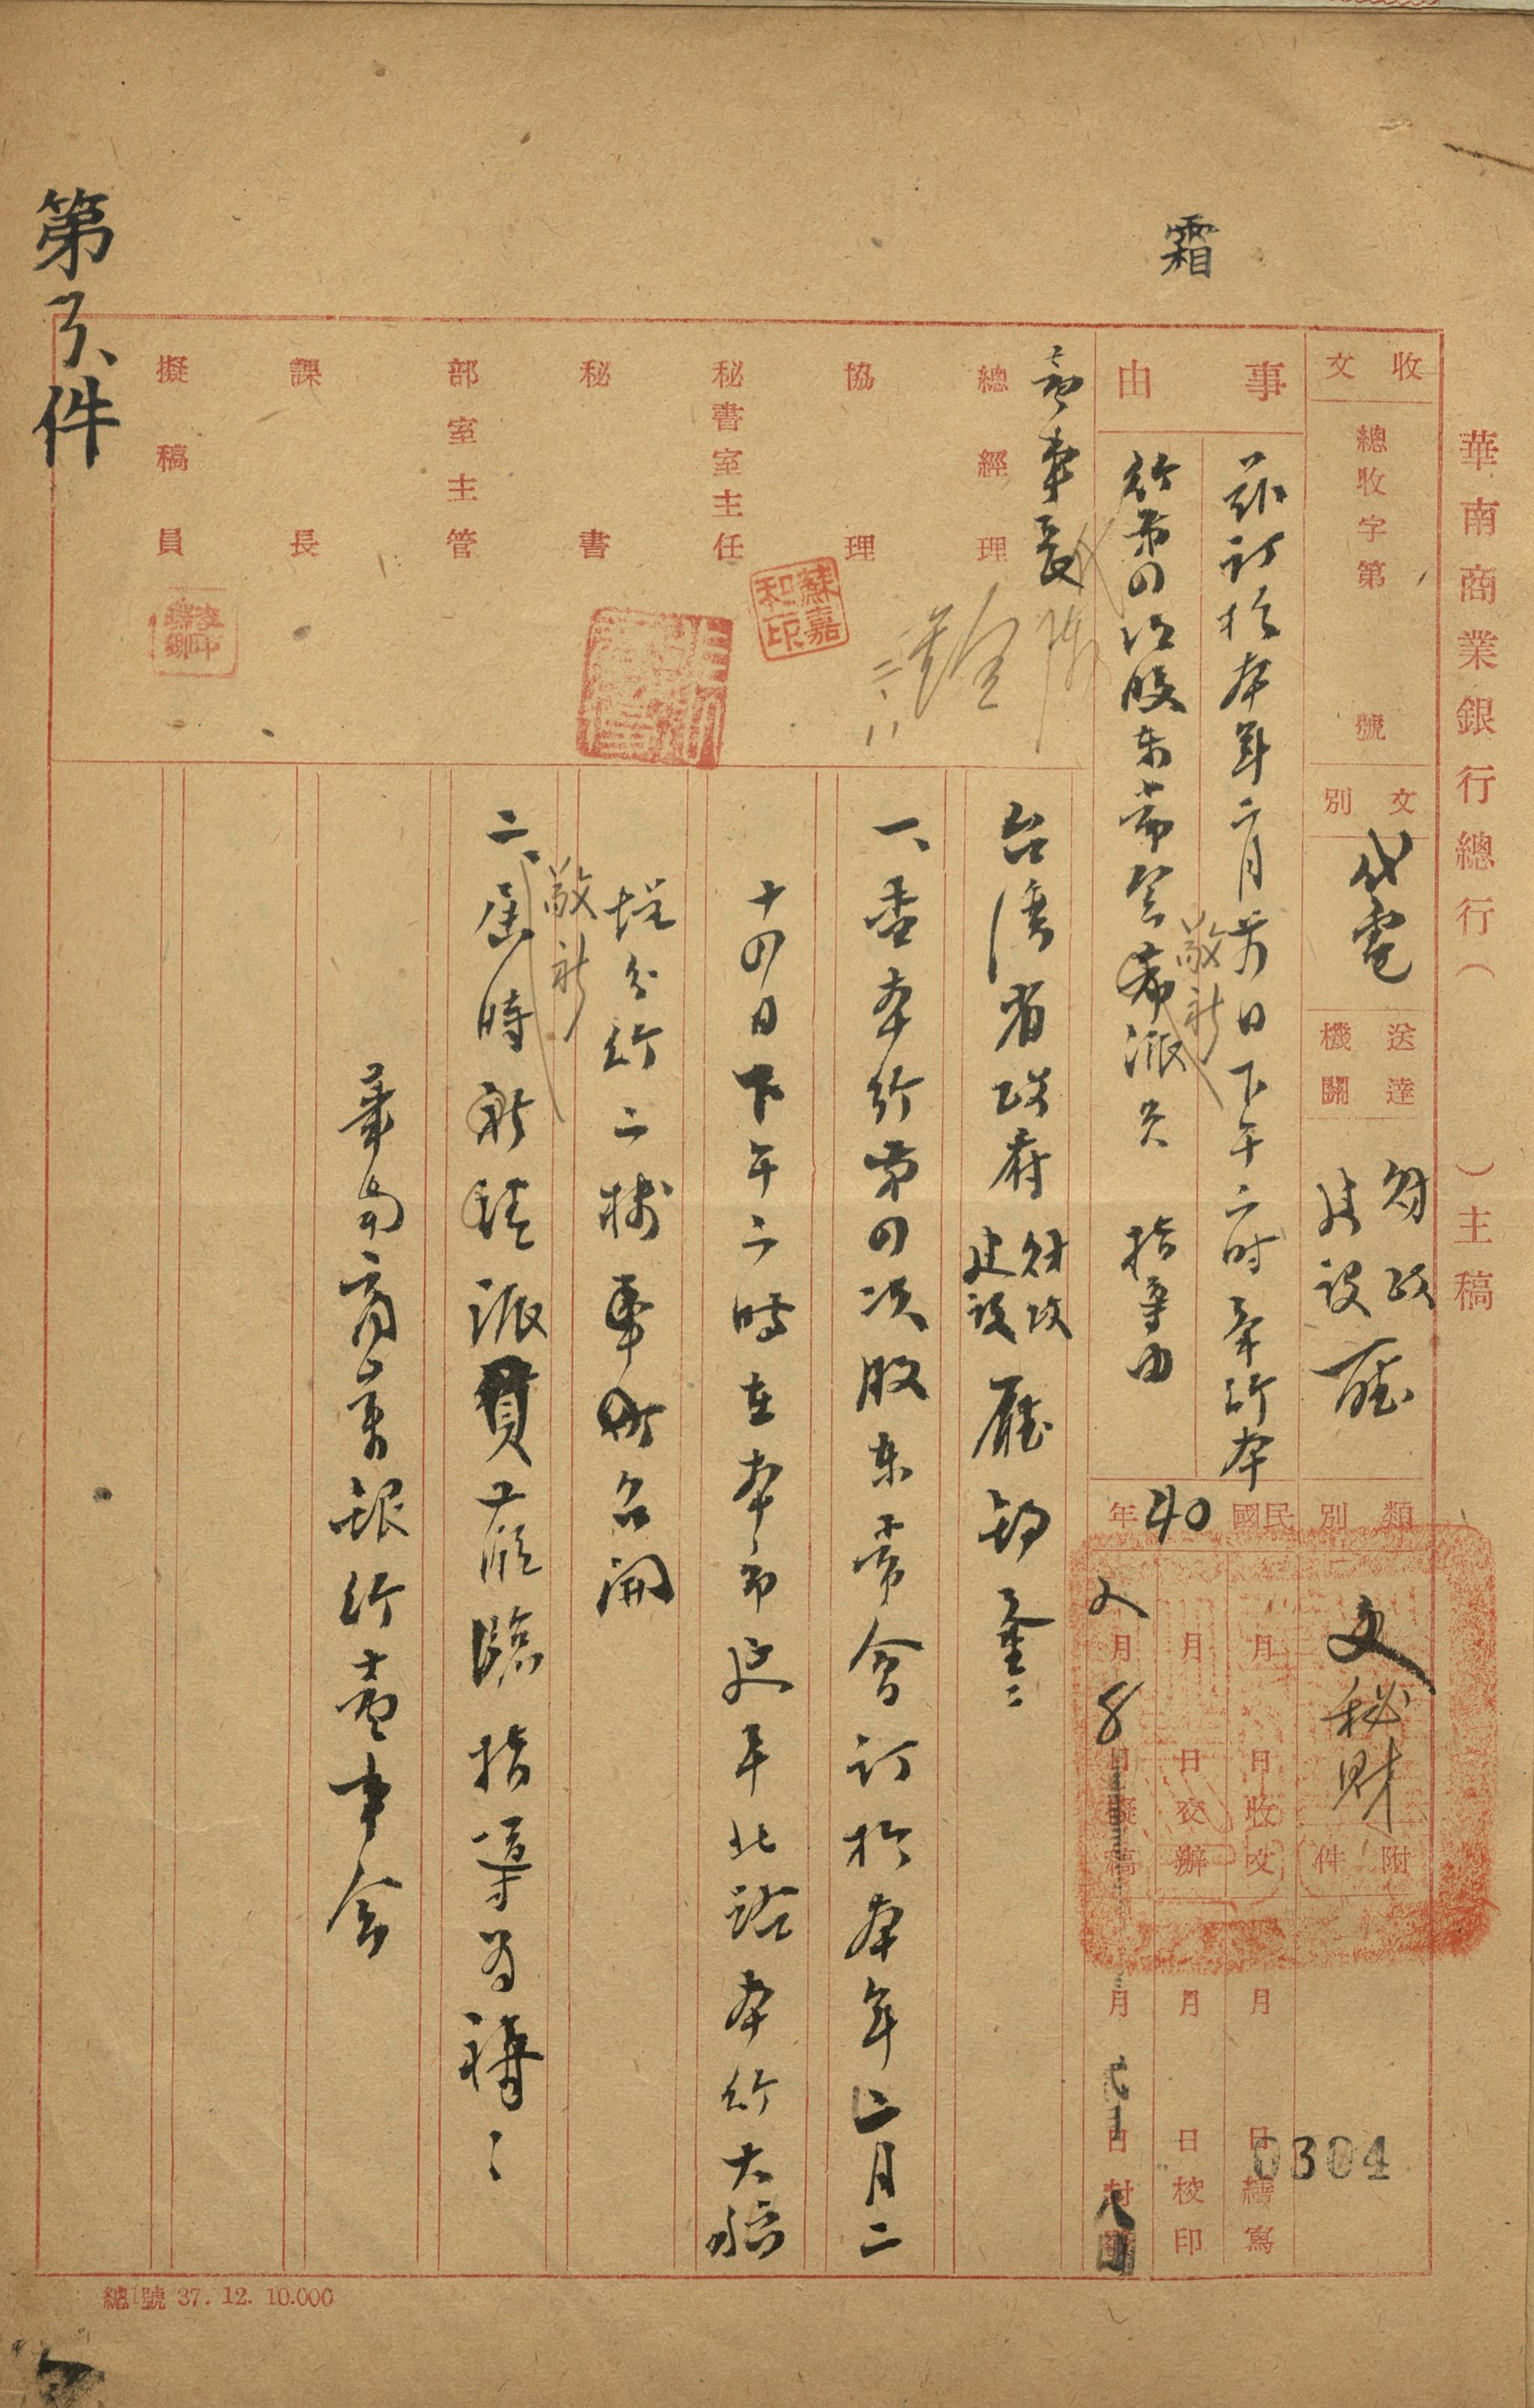 霜
華南商業銀行總行（　）主稿
收文
總收字第　號
文別
代電
送達機關
財政
建設
廳
類別
文
秘財
附件
事由
茲訂於本年二月廿四日下午二时本行本
行第四次股東常會敬祈派員　指导由
民國40年
月　日收文
月　日交辦
2月8日擬稿
月　日繕寫
月　日校印
月　日封發
0304
董事長
總經理
協理
秘書室主任
秘書
部室主管
課長
擬稿員
蘇嘉和印
台灣省政府
財政
建設
廳鈞鑒：
一、查本行第四次股東常會訂於本年二月二
十四日下午二時在本市延平北路本行大稻
埕分行二樓召開
二、屆時敬祈派員蒞臨指導为禱：
華南商業銀行董事會
第　件
總號 37. 12. 10.000